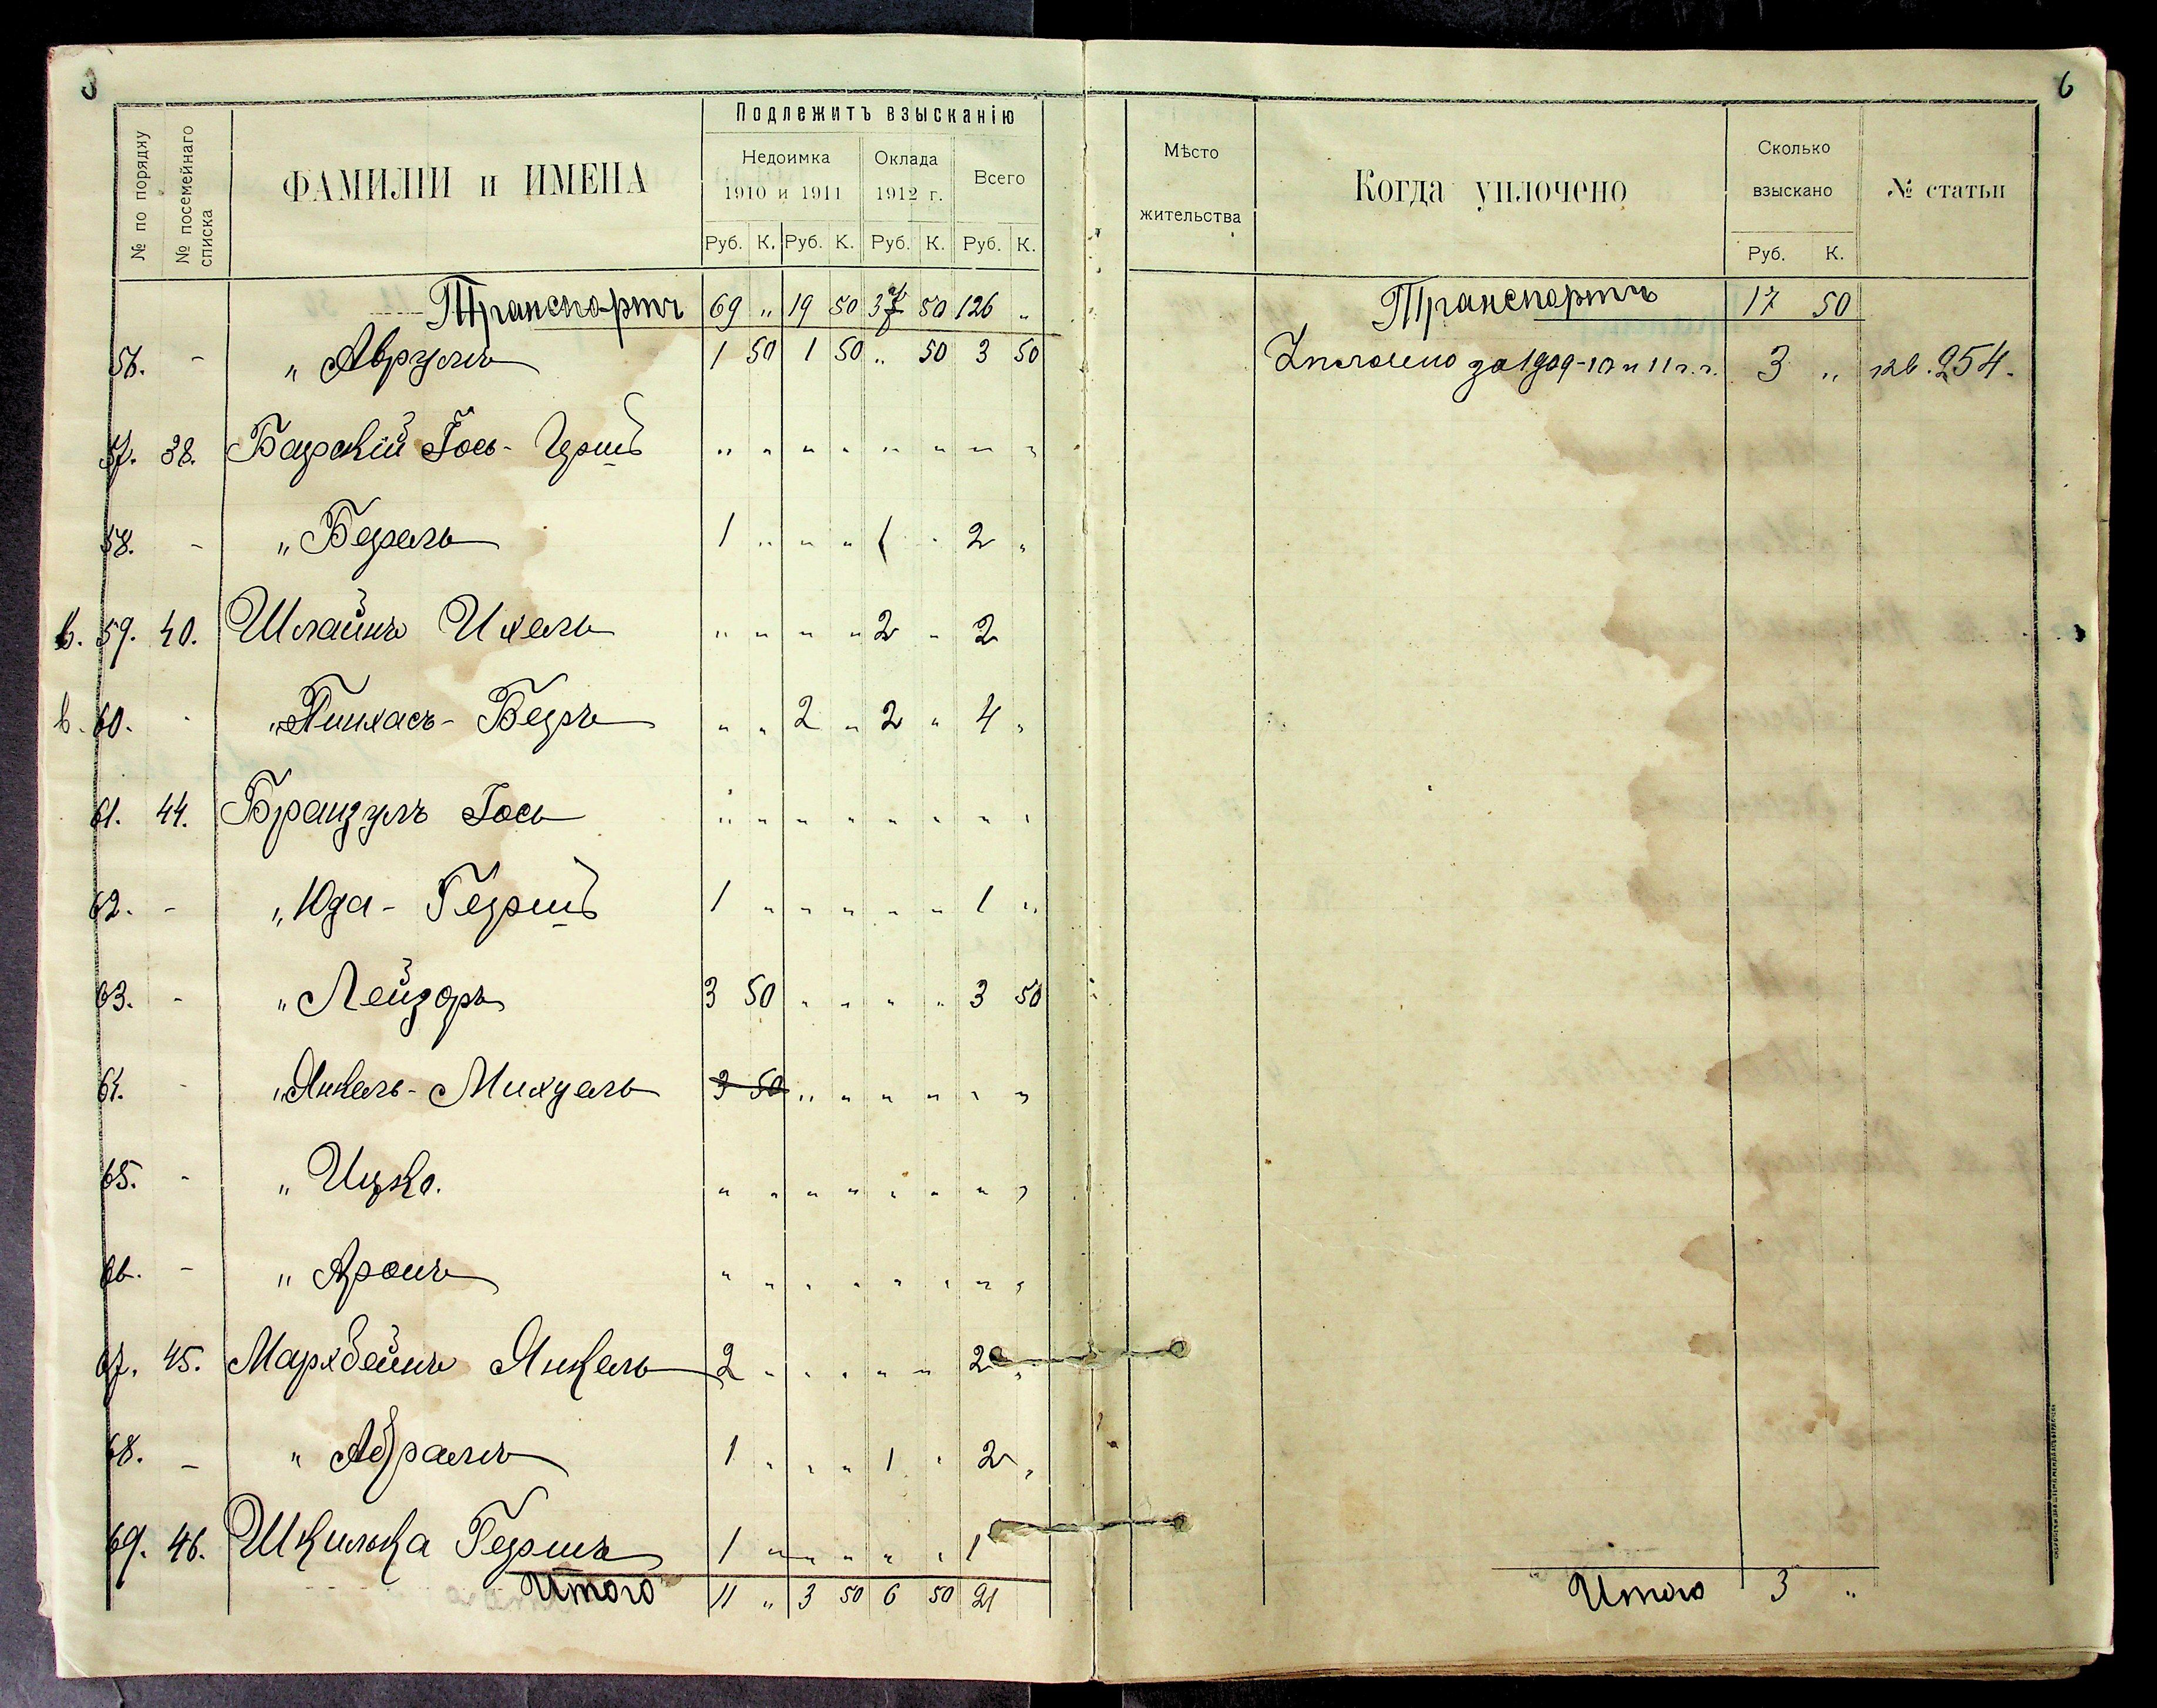 3
6
Подлежитъ взысканію
№ по порядку
№ посемейнаго списка
ФАМИЛІИ и ИМЕНА
Недоимка
1910 и 1911
Оклада
1912 г.
Всего
Руб. К. Руб. К. Руб. К. Руб. К.
Мѣсто
жительства
Когда уплочено
Сколько
взыскано
Руб. К.
№ статьи
Транспортъ 69 " 19 50 37 50 126 " Транспортъ 17 50
56. - " Аврумъ 1 50 1 50 " 50 3 50 Уплочено за 1909-10 и 11 г.г. 3 " кв. 254.
57. 38. Барскій Іось-Гершъ " " " " " " " "
58. - " Берель 1 " " " 1 " 2 "
в. 59. 40. Шлаинъ Ихель " " " " 2 " 2
в. 60. - " Пинхасъ-Беръ " " 2 " 2 " 4 "
61. 44. Бранзулъ Іось " " " " " " " "
62. - " Юда-Гершъ 1 " " " " " 1 "
63. - " Лейзоръ 3 50 " " " " 3 50
64. - " Янкель-Михуель 3 50 " " " " " "
65. - " Ицко. " " " " " " " "
66. - " Аронъ " " " " " " " "
67. 45. Мархбейнъ Янкель 2 " " " " " 2 "
68. - " Абрамъ 1 " " " 1 " 2 "
69. 46. Шкилька Гершъ 1 " " " " " 1
Итого 11 " 3 50 6 50 21 Итого 3 "